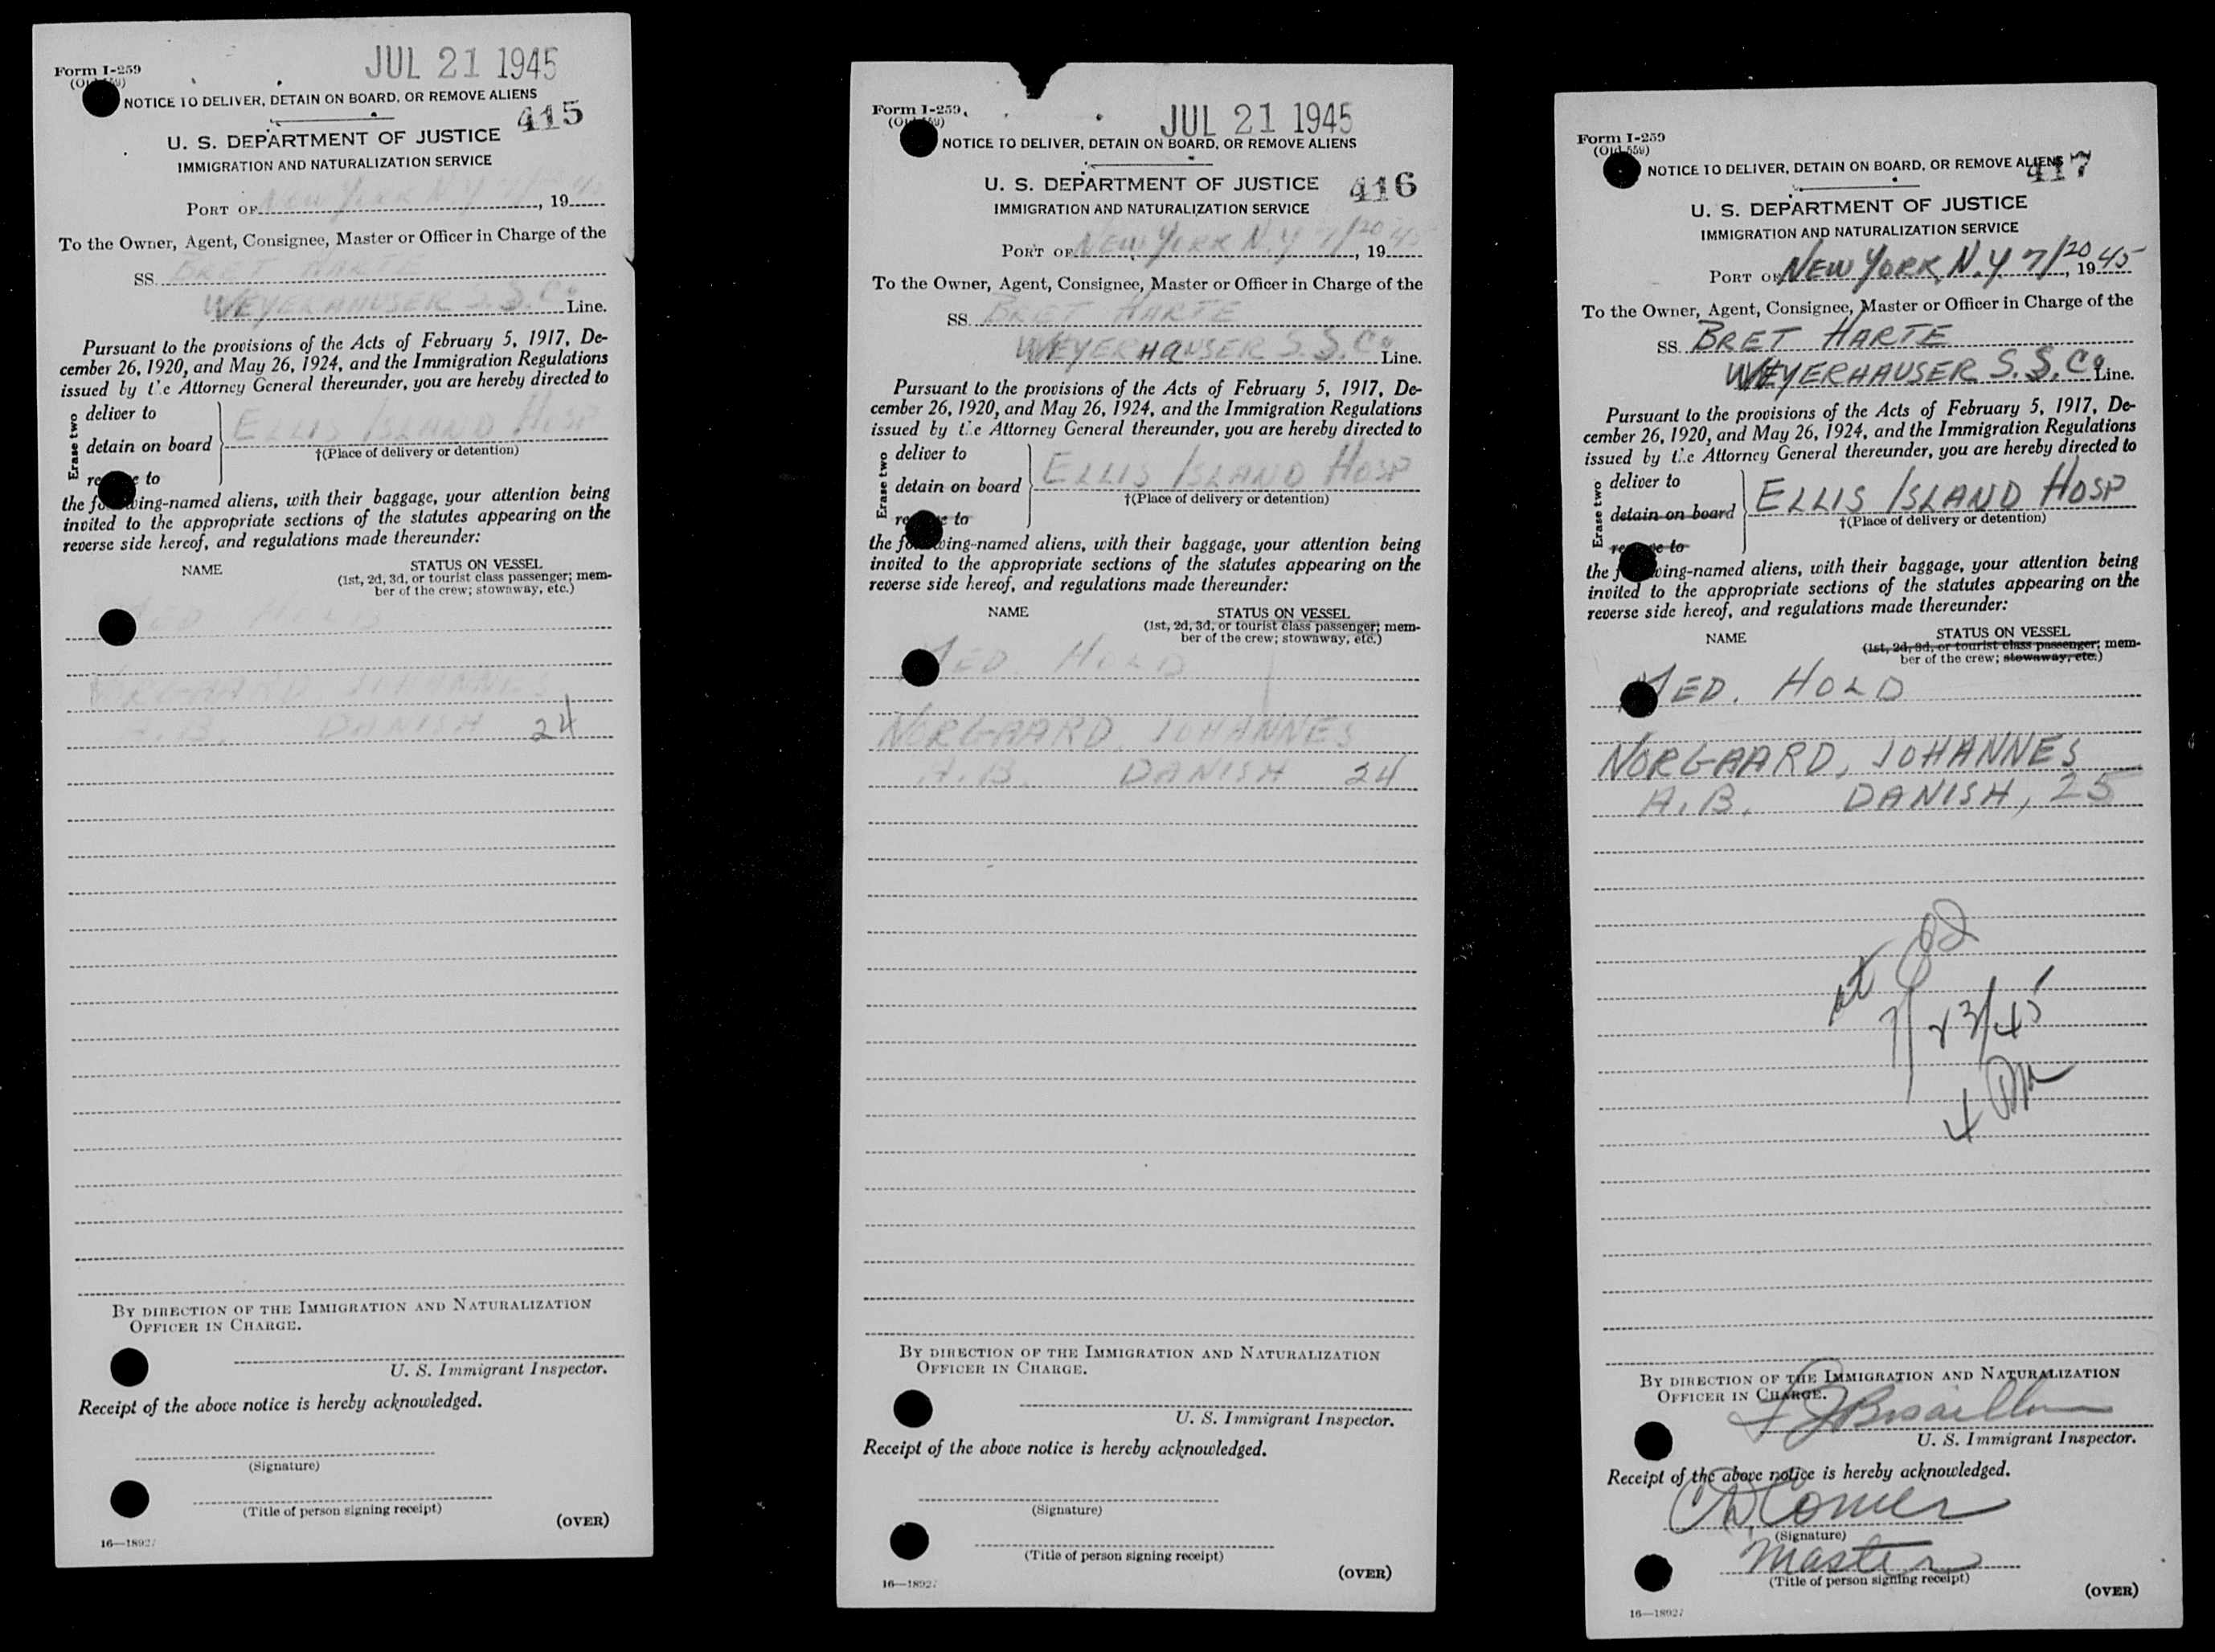 Form I-259
JUL 21 1945
NOTICE TO DELIVER, DETAIN ON BOARD, OR REMOVE ALIENS
415
U. S. DEPARTMENT OF JUSTICE
IMMIGRATION AND NATURALIZATION SERVICE
PORT OF New York N.Y , 19
To the Owner, Agent, Consignee, Master or Officer in Charge of the
SS. BRET HARTE
WEYERHAUSER S.S. Co Line.
Pursuant to the provisions of the Acts of February 5, 1917, De-
cember 26, 1920, and May 26, 1924, and the Immigration Regulations
issued by the Attorney General thereunder, you are hereby directed to
Erase two
deliver to
detain on board
to
ELLIS ISLAND HOSP
†(Place of delivery or detention)
the following-named aliens, with their baggage, your attention being
invited to the appropriate sections of the statutes appearing on the
reverse side hereof, and regulations made thereunder:
NAME STATUS ON VESSEL
(1st, 2d, 3d, or tourist class passenger; mem-
ber of the crew; stowaway, etc.)
MED HOLD
NORGAARD JOHANNES
A.B. DANISH 24
BY DIRECTION OF THE IMMIGRATION AND NATURALIZATION
OFFICER IN CHARGE.
U. S. Immigrant Inspector.
Receipt of the above notice is hereby acknowledged.
(Signature)
(Title of person signing receipt)
(OVER)
16—18927
Form I-259
JUL 21 1945
NOTICE TO DELIVER, DETAIN ON BOARD, OR REMOVE ALIENS
U. S. DEPARTMENT OF JUSTICE 416
IMMIGRATION AND NATURALIZATION SERVICE
PORT OF NEW YORK, N.Y 7/20, 19 45
To the Owner, Agent, Consignee, Master or Officer in Charge of the
SS. BRET HARTE
WEYERHAUSER S.S. Co Line.
Pursuant to the provisions of the Acts of February 5, 1917, De-
cember 26, 1920, and May 26, 1924, and the Immigration Regulations
issued by the Attorney General thereunder, you are hereby directed to
Erase two
deliver to
detain on board
to
ELLIS ISLAND HOSP
†(Place of delivery or detention)
the following-named aliens, with their baggage, your attention being
invited to the appropriate sections of the statutes appearing on the
reverse side hereof, and regulations made thereunder:
NAME STATUS ON VESSEL
(1st, 2d, 3d, or tourist class passenger; mem-
ber of the crew; stowaway, etc.)
MED HOLD
NORGAARD, JOHANNES
A.B. DANISH 24
BY DIRECTION OF THE IMMIGRATION AND NATURALIZATION
OFFICER IN CHARGE.
U. S. Immigrant Inspector.
Receipt of the above notice is hereby acknowledged.
(Signature)
(Title of person signing receipt)
(OVER)
16—18927
Form I-259
(Old 559)
NOTICE TO DELIVER, DETAIN ON BOARD, OR REMOVE ALIENS
417
U. S. DEPARTMENT OF JUSTICE
IMMIGRATION AND NATURALIZATION SERVICE
PORT OF NEW YORK, N.Y 7/20, 19 45
To the Owner, Agent, Consignee, Master or Officer in Charge of the
SS. BRET HARTE
WEYERHAUSER S.S. Co Line.
Pursuant to the provisions of the Acts of February 5, 1917, De-
cember 26, 1920, and May 26, 1924, and the Immigration Regulations
issued by the Attorney General thereunder, you are hereby directed to
Erase two
deliver to
detain on board
to
ELLIS ISLAND HOSP
†(Place of delivery or detention)
the following-named aliens, with their baggage, your attention being
invited to the appropriate sections of the statutes appearing on the
reverse side hereof, and regulations made thereunder:
NAME STATUS ON VESSEL
(1st, 2d, 3d, or tourist class passenger; mem-
ber of the crew; stowaway, etc.)
MED. HOLD
NORGAARD, JOHANNES
A.B. DANISH, 25
7/23/45
BY DIRECTION OF THE IMMIGRATION AND NATURALIZATION
OFFICER IN CHARGE.
U. S. Immigrant Inspector.
Receipt of the above notice is hereby acknowledged.
(Signature)
Master
(Title of person signing receipt)
(OVER)
16—18927